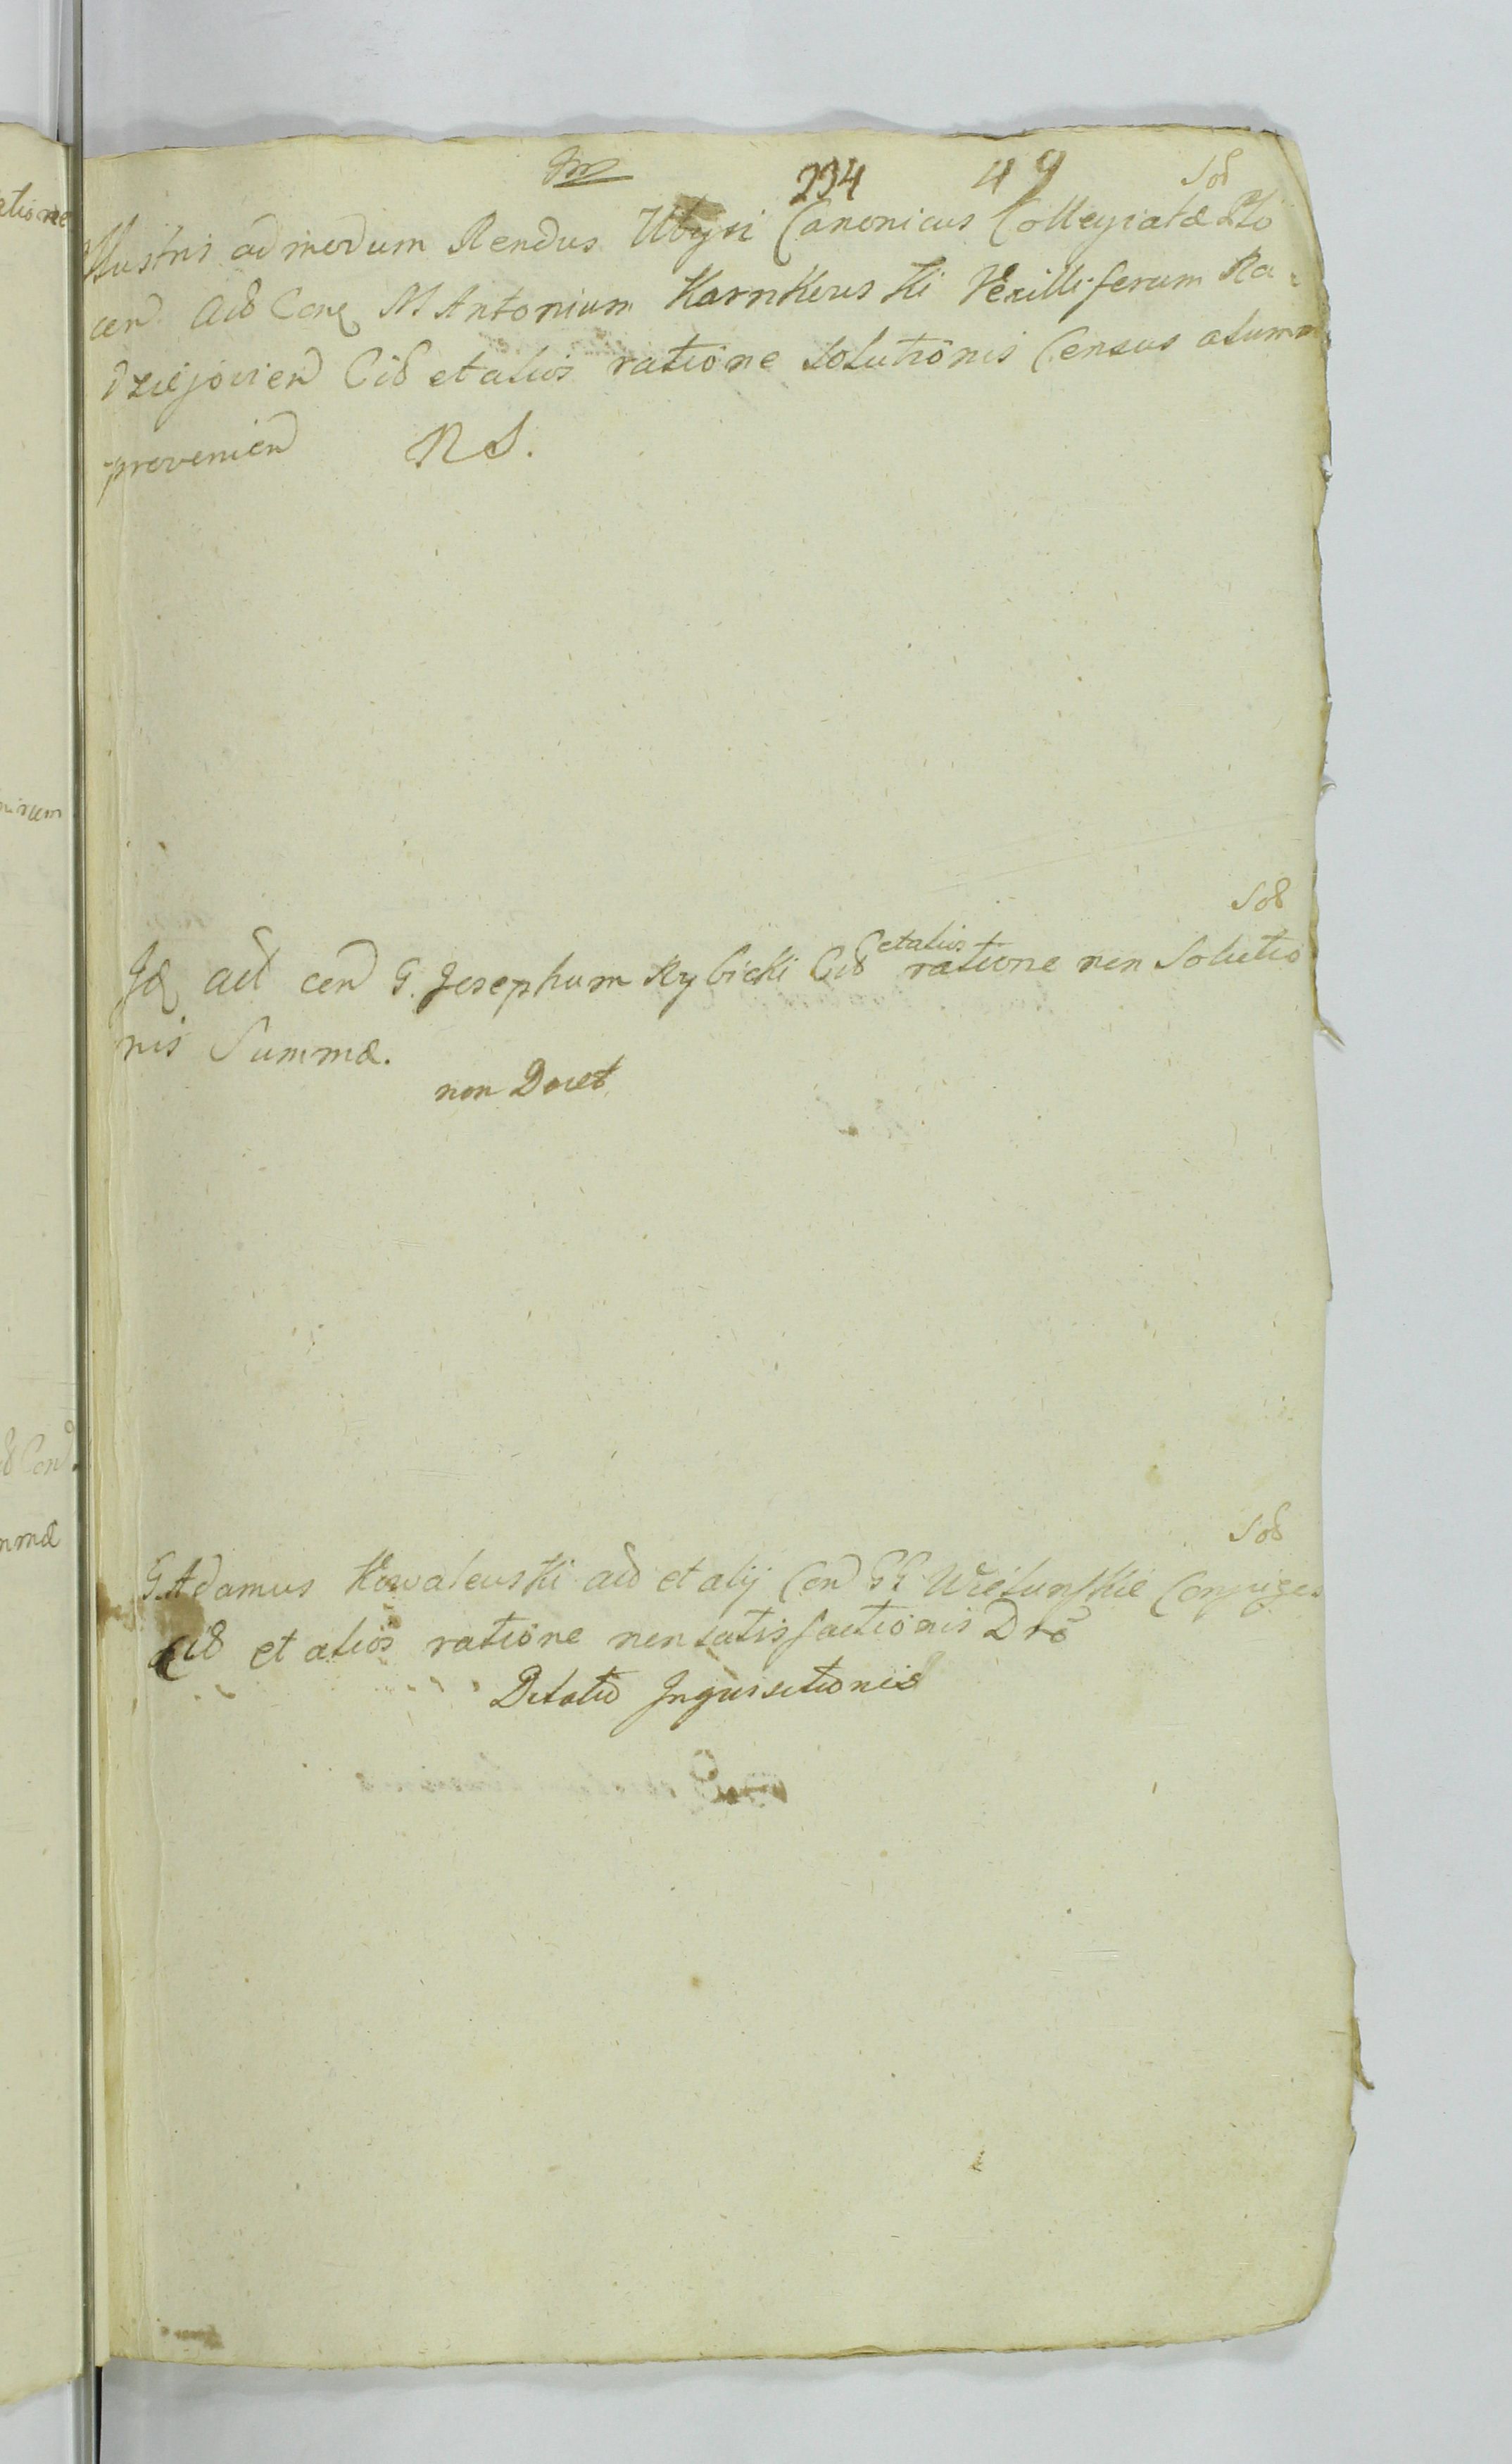 234 49
Sol
Illustris admodum Rendus Ubysi Canonicus Collegiatæ Plo
cen Act Conq M Antonium Karnkowski Vexilliferum Ra=
dziejovien Cit et alios ratione solutionis Census alumn
provenien NS.
Sol
Jdq act con G. Josephum Rybicki Cit et alios ratione non Solutio
nis Summæ.
non Docet
Sol
G. Adamus Kowalewski act et alij Con GG Wielunskie Conjuges
Cit et alios ratione non satisfactionis Dto
Dilatio Inquisitionis